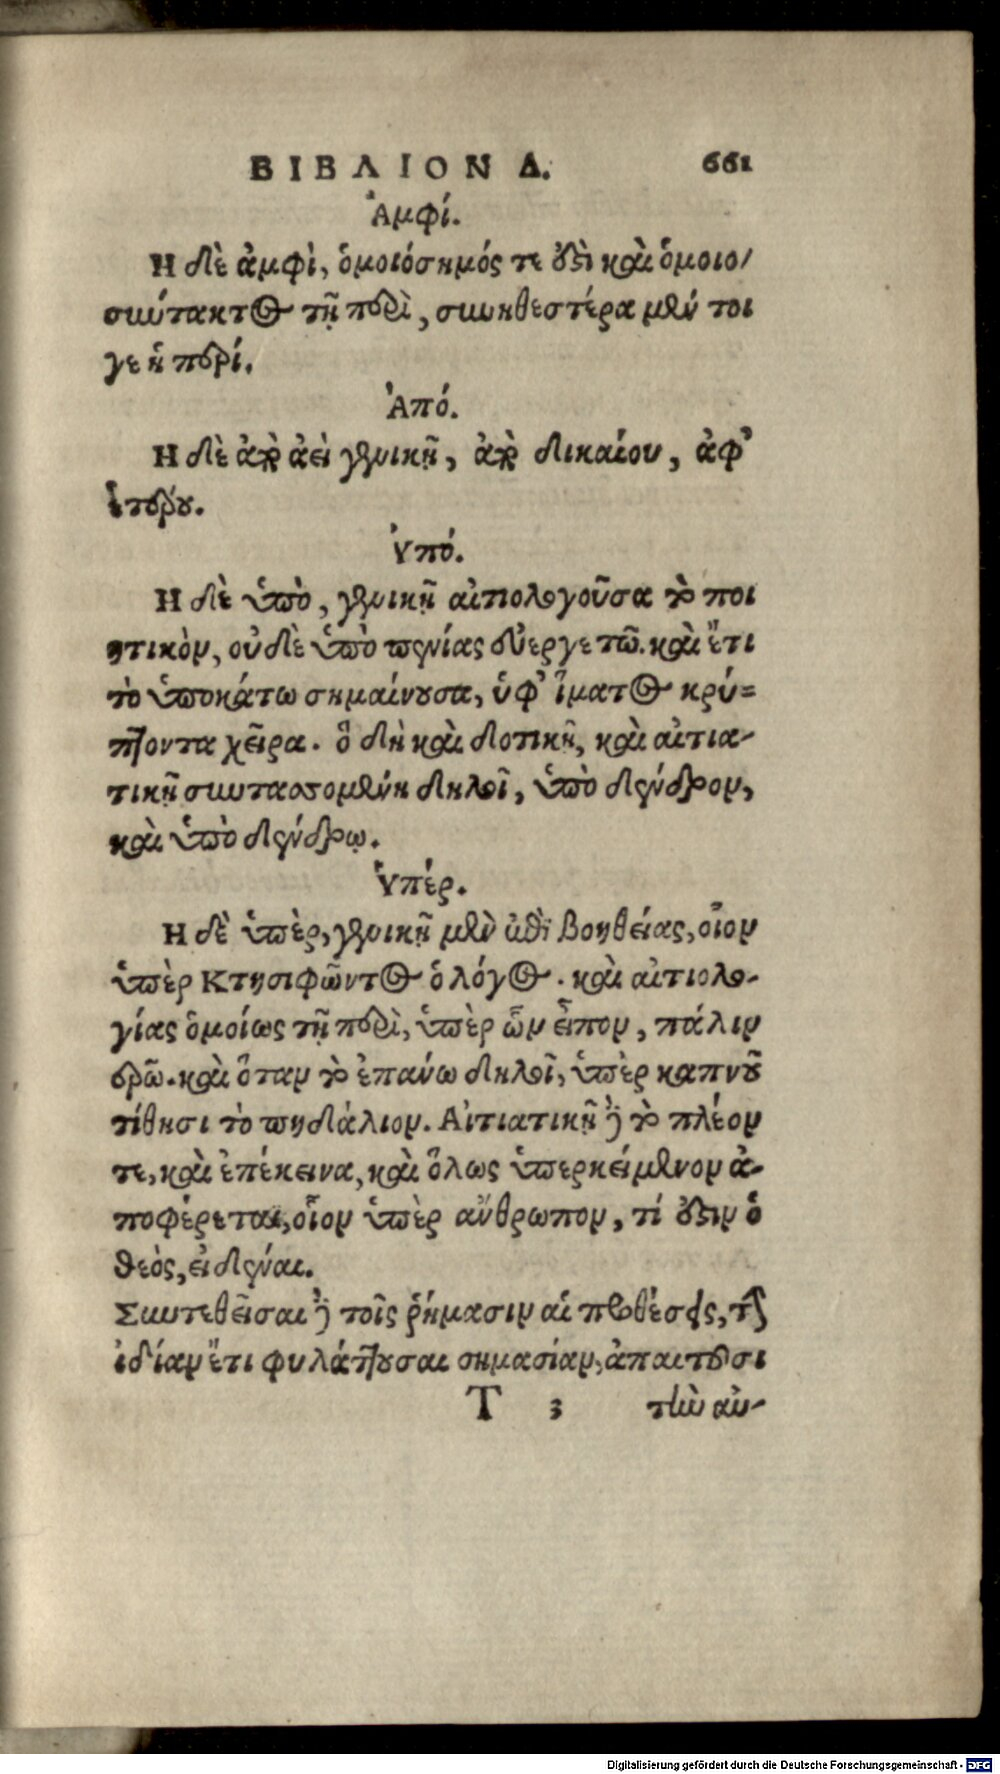 ΒΙΒΛΙΟΝ Δ. 661
Ἀμφί.
Η δὲ ἀμφὶ, ὁμοιόσημός τε ὅϛὶ καὶ ὁμοιο/
σιωύτακτος τῇ περὶ, σιωηθεστέρα μέν τοι
γε ἡ περί.
Ἀπό.
Η δὲ ἀπὸ ἀεὶ γενικῇ, ἀπὸ δικαίου, ἀφ’
ἑτέρου.
Ὑπό.
Η δὲ ὑπὸ, γενικῇ αἰτιολογοῦσα τὸ ποι
ητικὸν, οὐδὲ ὑπὸ πενίας εὐεργετῶ. καὶ ἔτι
τὸ ὑποκάτω σημαίνουσα, ὑφ’ ἵματος κρύ=
πτοντα χεῖρα. ὃ δὴ καὶ δοτικῇ, καὶ αἰτια-
τικῇ σιωτασσομένη δηλοῖ, ὑπὸ δένδρον,
καὶ ὑπὸ δένδρῳ.
Ὑπέρ.
Η δὲ ὑπὲρ, γενικῇ μὲν ἐπὶ βοηθείας, οἷον
ὑπὲρ Κτησιφῶντος ὁ λόγος. καὶ αἰτιολο-
γίας ὁμοίως τῇ περὶ, ὑπὲρ ὧν εἶπον, πάλιν
ἐρῶ. καὶ ὅταν τὸ ἐπάνω δηλοῖ, ὑπὲρ καπνοῦ
τίθησι τὸ πηδάλιον. Αἰτιατικῇ δὲ τὸ πλέον
τε, καὶ ἐπέκεινα, καὶ ὅλως ὑπερκείμενον ἀ-
ποφέρεται, οἷον ὑπὲρ ἄνθρωπον, τί ὅϛιν ὁ
θεὸς, εἰδέναι.
Σιωτεθεῖσαι δὲ τοῖς ῥήμασιν αἱ προθέσεις, τὴν
ἰδίαν ἔτι φυλάττουσαι σημασίαν, ἀπαιτοῦσι
Τ 3 τὴν αὐ-
Digitalisierung gefördert durch die Deutsche Forschungsgemeinschaft - DFG